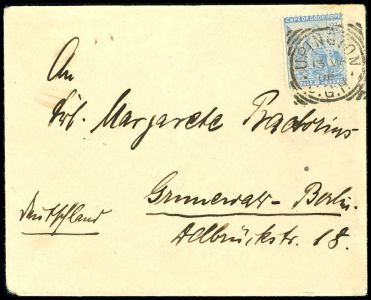 CAPE OF GOOD HOPE
UPINGTON
C.G.H.
An
Frl. Margarete Praetorius
Grunewald - Berlin.
Deutschland
Delbrückstr. 18.